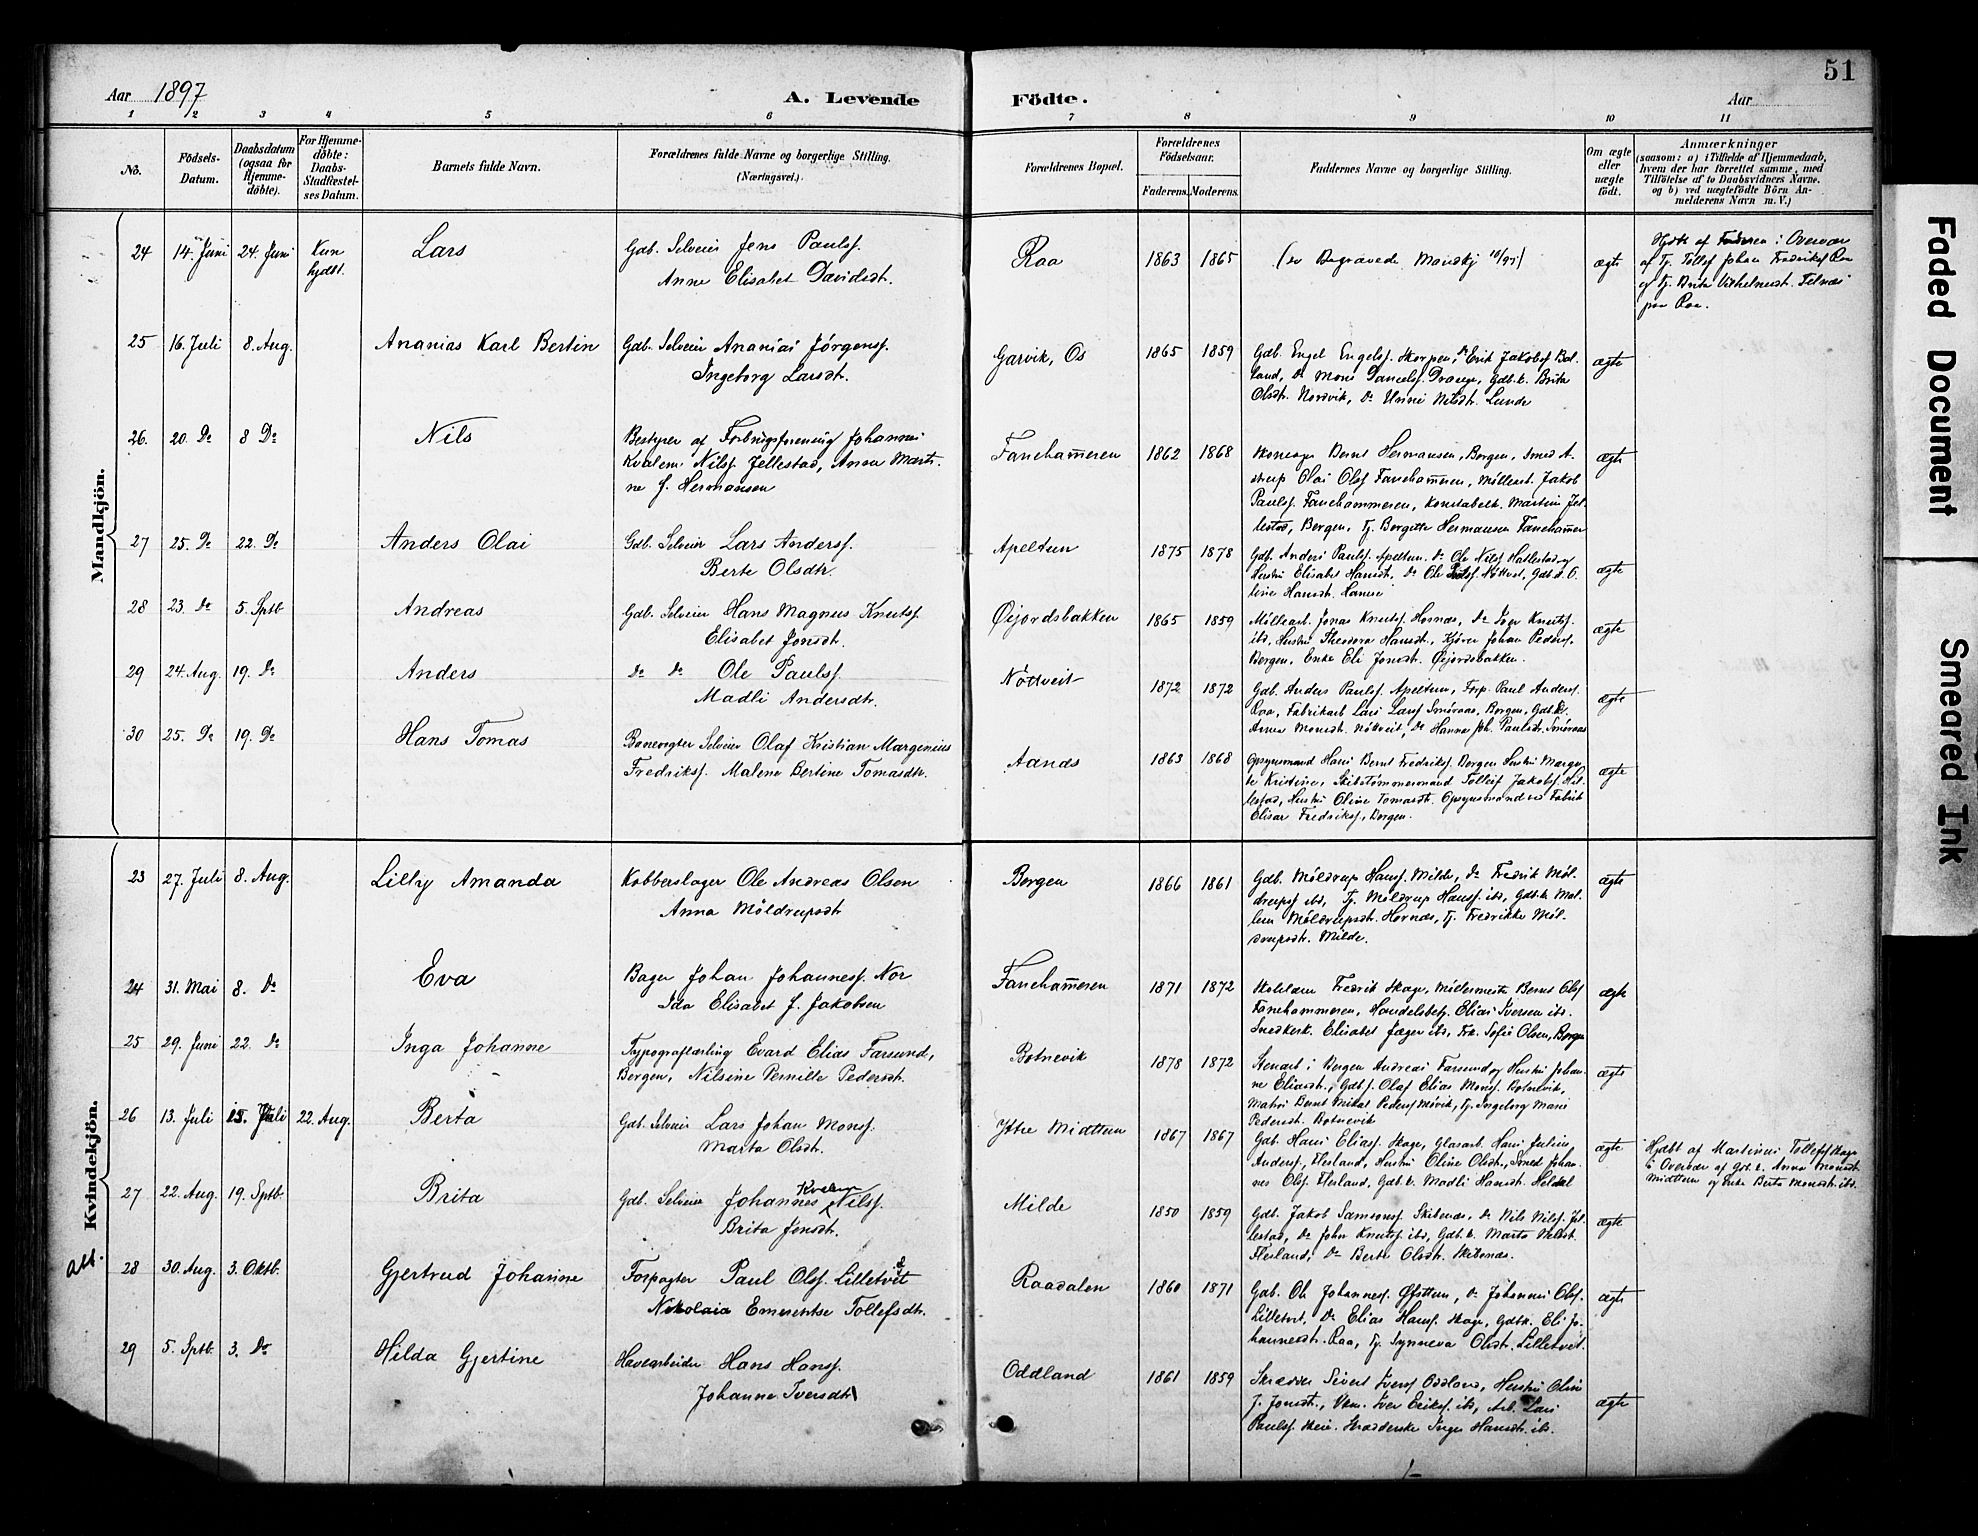 51
Aar 1897
A. Levende
Födte.
Aar
1 2 3 4 5 6 7 8 9 10 11
No.
Födsels-Datum.
Daabsdatum (ogsaa for Hjemme-döbte).
For Hjemme-döbte: Daabs-Stadfæstel-ses Datum.
Barnets fulde Navn.
Forældrenes fulde Navne og borgerlige Stilling.
(Næringsvei.)
Forældrenes Bopæl.
Forældrenes Födselsaar.
Faderens. Moderens.
Faddernes Navne og borgerlige Stilling.
Om ægte eller uægte födt.
Anmærkninger
(saasom: a) i Tilfælde af Hjemmedaab,
hvem der har forrettet samme, med
Tilföielse af to Daabsvidners Navne,
og b) ved uægtefödte Börn An-
melderens Navn m. V.)
Mandkjön.
24 14. Juni 24. Juni Kun hjdbt. Lars
Gdb. Selveier Jens Paulsf.
Anne Elisabet Davidsdt.
Raa 1863 1865 ægte
af Tj. Tollef Johan Fredriksf Raa
paa Raa.
25 16. Juli 8. Aug. Ananias Karl Bertin
Gdb. Selveier Ananias Jörgensf.
Ingeborg Larsdt.
Garvik, Os 1865 1859
Gdb. Engel Engelsf. Skorpen, Do Erik Jakobsf Bal-
land, Do Mons Danielsf. Drange, Gdb.k. Brita
Olsdt. Nordvik, Do Unni Nilsdt. Lunde
ægte
26. 20. Do 8 Do Nils
Bestyrer af Forbrugsforening Johannes
Kvalem Nilsf. Jellestad, Anna Marti-
ne f. Hermansen
Fanehammeren 1862 1868
Bernt Hermansen, Bergen, Smed A-
strup Olai Olsf Fanehammeren, Möllearb. Jakob
Paulsf. Fanehammeren, Konstabelk. Martine Jel-
lestad, Bergen, Tj. Bergitte Hermansen Fanehammer
ægte
27 25. Do 22. Do Anders Olai
Gdb. Selveier Lars Andersf.
Berte Olsdtr.
Apeltun 1875 1878
Gdb. Anders Paulsf. Apeltun. Do Ole Nilsf Hatlestad og
Hustru Elisabet Hansdt., Do Ole Nöttveit, Gdb.d. O-
line Hansdt.
ægte
28 23. Do 5. Sptb. Andreas
Gdb. Selveier Hans Magnus Knutsf.
Elisabet Jonsdt.
Öijordsbakken 1865 1859
Möllearb. Jonas Knutsf. Hornæs, Do Iver Knutsf.
ibd, Hustru Theodora Hansdt., Kjörer Johan Pedersf.
Bergen, Enke Eli Jonsdt. Öijordsbakken.
ægte
29 24. Aug. 19. Do Anders
Do Do Ole Paulsf.
Madli Andersdtr.
Nöttveit 1872 1872
Gdb. Anders Paulsf. Apeltun, Forp. Paul Andersf.
Raa, Fabrikarb Lars Larsf Smöraas, Bergen, Gdb.k.
Anna Monsdt. Nöttveit, Do Hanna Joh. Paulsdt. Smöraas
ægte
30 25. Do 19. Do Hans Tomas
Banevogter Selveier Olaf Kristian Marginius
Fredriksf. Malene Bertine Tomasdtr.
Aanæs 1863 1868
Opsynsmand Hans Bernt Fredriksf. Bergen Hustru Margre-
te Kristine, Skibstömmermand Tolleif Jakobsf. Hil-
lestad, Hustru Oline Tomasdt. Opsynsmand ved Fabrik
Elisar Fredriksf., Bergen.
ægte
Kvindekjön.
23 27. Juli 8. Aug. Lilly Amanda
Kobberslager Ole Andreas Olsen
Anna Möldrupsdt
Bergen 1866 1861
Gdb. Möldrup Hansf. Milde, Do Fredrik Möl-
drupsf ibd, Tj. Möldrup Hansf. ibd, Gdb.k. Mal-
lena Möldrupsdt. Hornæs, Tj. Fredrikke Möl-
drupsdt. Milde.
ægte
24 31. Mai 8. Do Eva
Bager Johan Johannesf. Nor
Ida Elisabet f. Jakobsen
Fanehammeren 1871 1872
Fredrik Skage, Möllermester Bernt Olsf
Fanehammeren, Handelsbetj. Elias Iversen ibd.
Snedkerk. Elisabet Jæger ibd, Frk. Sofie Olsen, Bergen
ægte
25 29. Juni 22. Do Inga Johanne
Typograflærling Evard Elias Farsund,
Bergen, Nilsine Pernille Pedersdt.
Botnevik 1878 1872
Stenarb. i Bergen Andreas Farsund og Hustru Johan-
ne Eliasdt., Gdb.f. Olaf Elias Monsf. Botnevik,
Matros Bernt Mikal Pedersf Mövik, Tj. Ingeborg Marie
Pedersdt. Botnevik
ægte
26 13. Juli 15. Juli 22. Aug. Berta
Gdb. Selveier Lars Johan Monsf.
Marta Olsdt.
Ytre Midttun 1867 1867
Gdb. Hans Eliasf. Skage, Glasarb. Hans Julius
Andersf., Flesland, Hustru Oline Olsdt., Smed Johan-
nes Olsf. Flesland, Gdb.k. Madli Hansdt. Heldal
ægte
Hjdbt af Martinus Tollefsf Skage
i Overvær af Gdb.k. Anna Monsdt.
Midttun og Enke Berta Monsdt. ibd.
27 22. Aug. 19. Sptb. Brita
Gdb. Selveier Johannes Kvalem Nilsf.
Brita Jonsdtr.
Milde 1850 1859
Gdb. Jakob Samsonsf. Skibenæs, Do Nils Nilsf. Jel-
lestad, Do John Knutsf. ibd, Gdb.k. Marta Nilsdt.
Flesland, Do Berta Olsdt. Skibenæs.
ægte
att.
28 30. Aug. 3. Oktb. Gjertrud Johanne
Forpagter Paul Olsf. Lilletvet
Nikolaia Emerentse Tollefsdtr.
Raadalen 1860 1871
Gdb. Ole Johannesf. Öfsttun, Do Johannes Olsf.
Lilletvet, Do Elias Hansf. Skage, Gdb.k. Eli Jo-
hannesdt. Raa, Tj. Synneva Olsdt. Lilletvet.
ægte
29 5. Sptb. 3. Do Hilda Gjertine
Havearbeider Hans Hansf.
Johanne Iversdt
Oddland 1861 1859
Skrædder Sivert Iversf Oddland, Hustru Oline
J. Jonsdt., Ukm. Iver Eriksf. ibd, Arb. Lars
Paulsf. Skeie. Skrædderske Inger Hansdt. ibd.
ægte
Faded Document
Smeared Ink